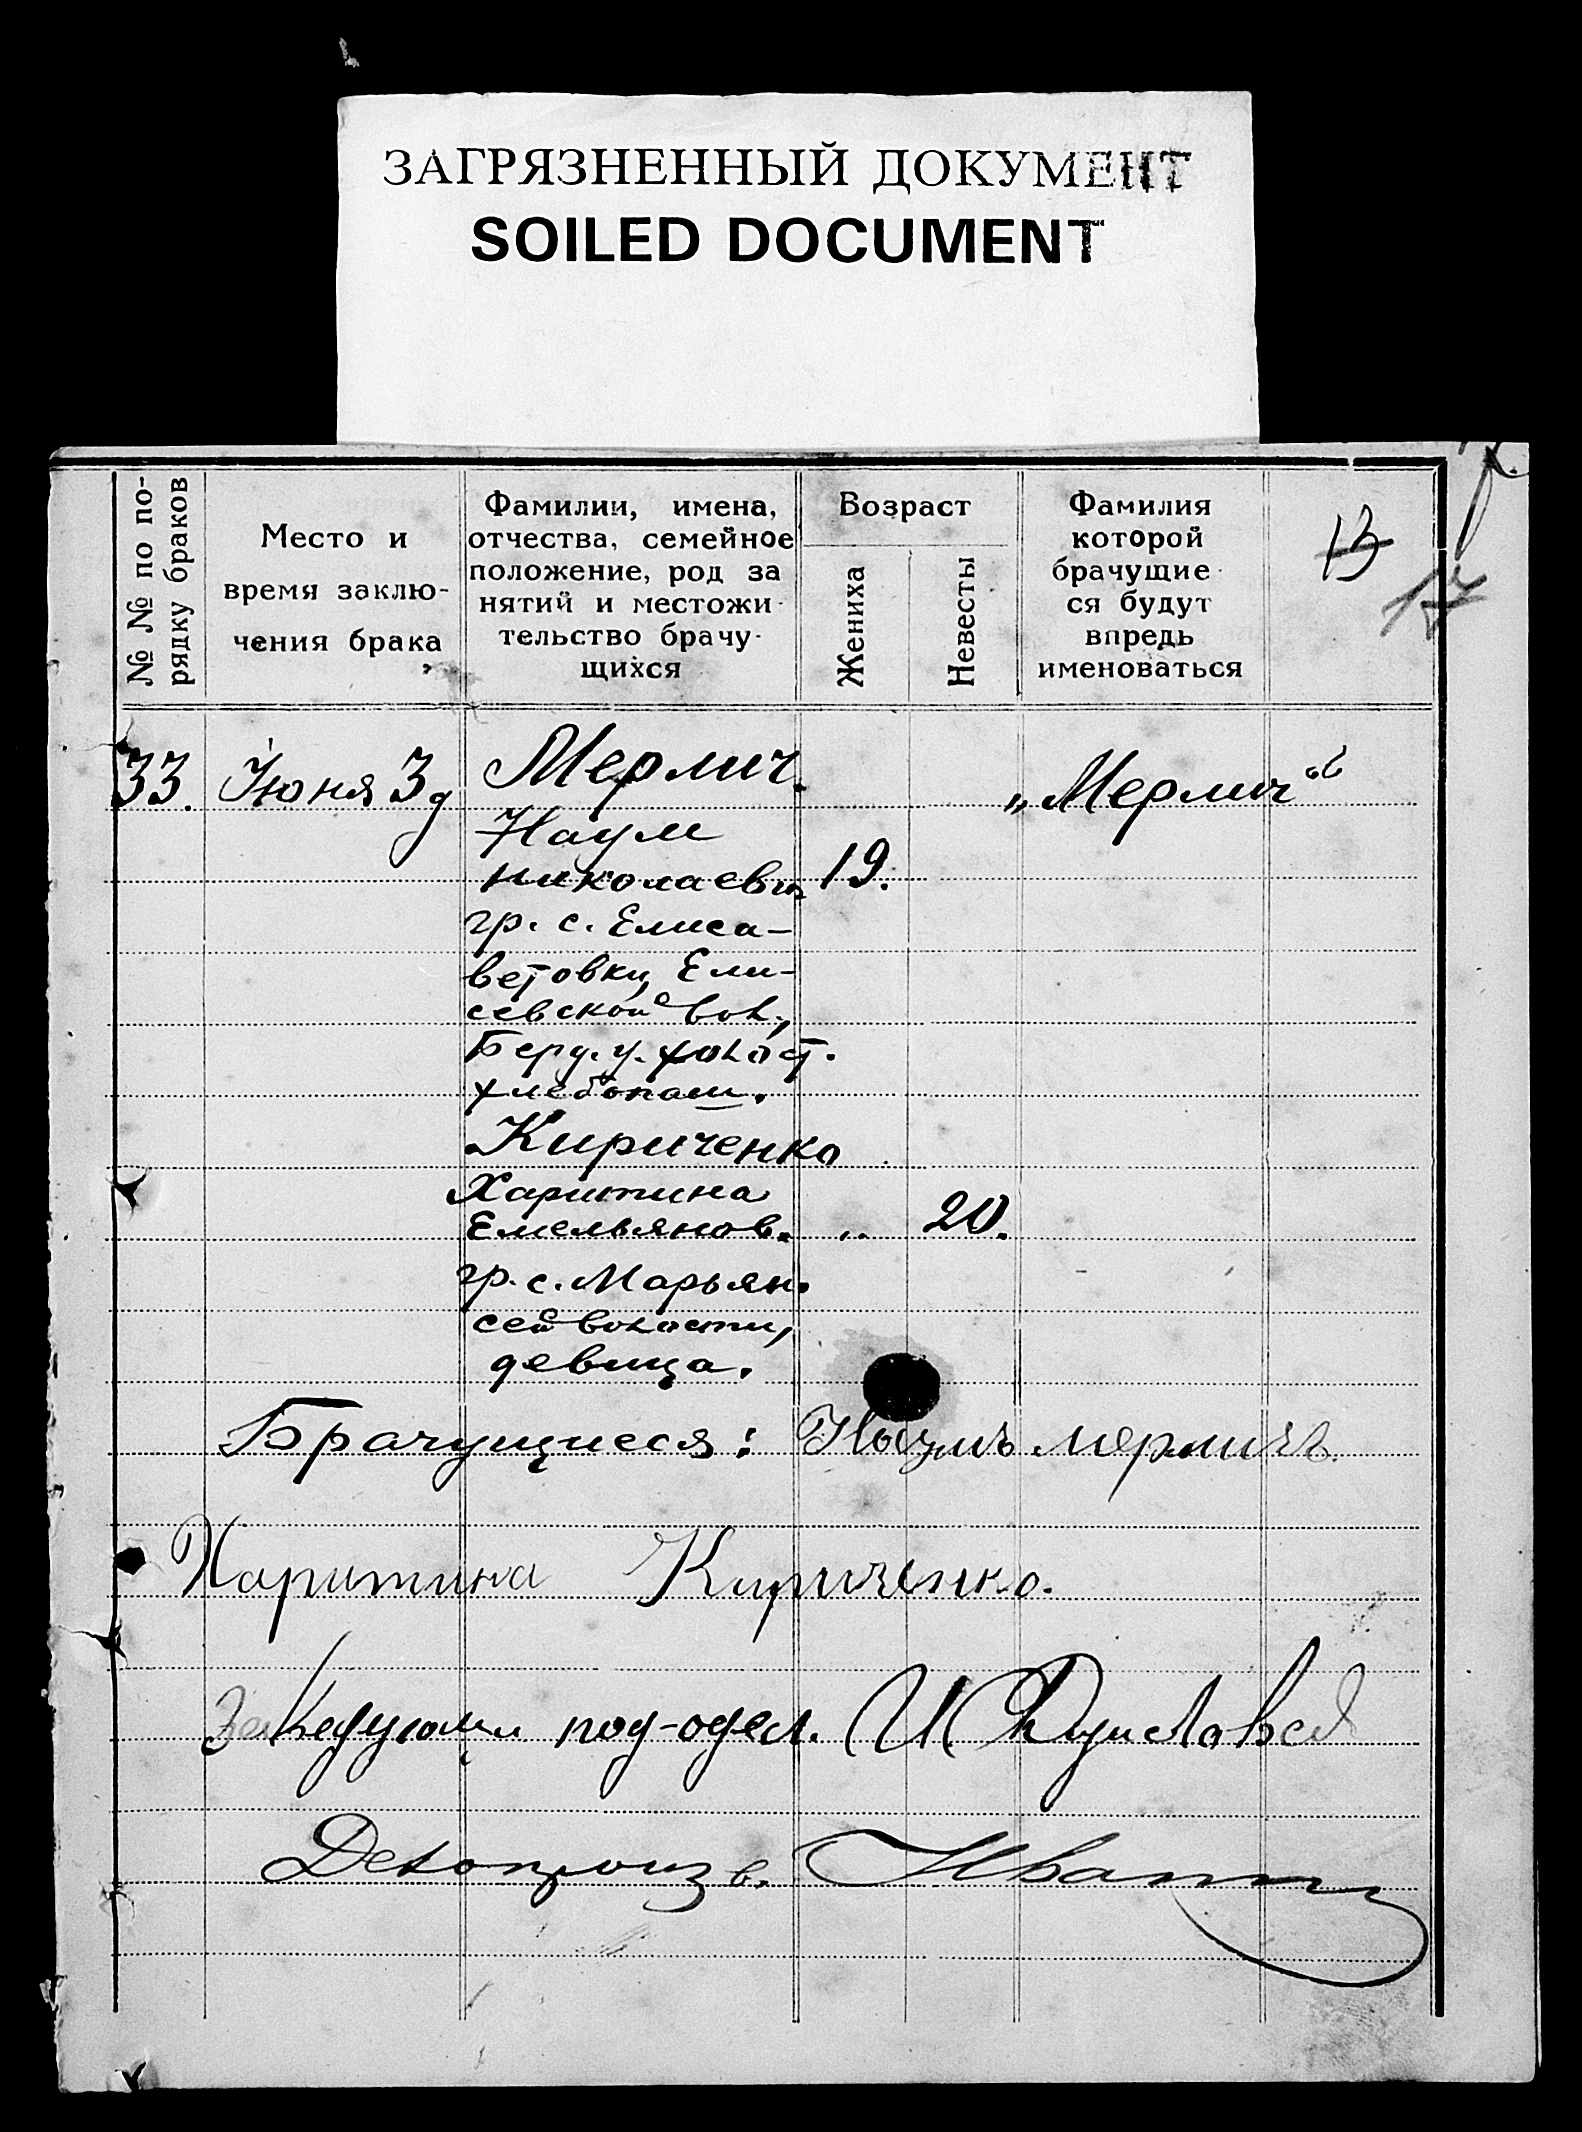 ЗАГРЯЗНЕННЫЙ ДОКУМЕНТ
SOILED DOCUMENT
№ № по по-
рядку браков
Место и
время заклю-
чения брака
Фамилии, имена,
отчества, семейное
положение, род за
нятий и местожи
тельство брачу-
щихся
Возраст
Жениха
Невесты
Фамилия
которой
брачущие
ся будут
впредь
именоваться
13
17
33. Июня 3д Мерлич. „Мерлич“
Наум
Николаевич 19.
гр. с. Елиса-
ветовки, Ели-
сеевской вол.,
Берд. у. холост.
хлебопаш.
Кириченко
Харитина
Емельянов. „ 20.
гр. с. Марьян.
сей волости,
девица.
Брачущиеся: Наумъ Мерличъ.
Харитина Кириченко.
Заведующи под-одел. И.
Делопроизв.